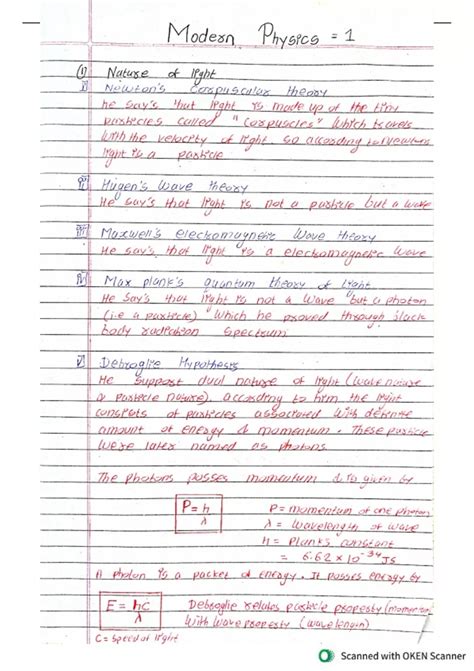 Modern Physics = 1
(1) Nature of light
i] Newton's Corpuscular theory
He say's that light is made up of the tiny
particles called "Corpuscles" which travels
with the velocity of light. so according to Newton
light is a particle
ii] Hugen's Wave theory
He say's that light is not a particle but a wave
iii] Maxwell's electromagnetic Wave theory
He say's that light is a electromagnetic Wave
iv] Max plank's quantum theory of light
He Say's that light is not a Wave but a photon
(i.e a particle) which he proved through black
body radiation Spectrum.
v] Debroglie Hypothesis
He support dual nature of light (wave nature
& particle nature). according to him the light
consists of particles associated with definite
amount of energy & momentum. These particle
were later named as photons.
The photons posses momentum & is given by
P = h/λ
P = momentum of one photon
λ = wavelength of wave
h = Planks constant
= 6.62 × 10⁻³⁴ JS
A photon is a packet of energy. It posses energy by
E = hc/λ
Debroglie relates particle property (momentum)
With wave property (wavelength)
C = speed of light
Scanned with OKEN Scanner